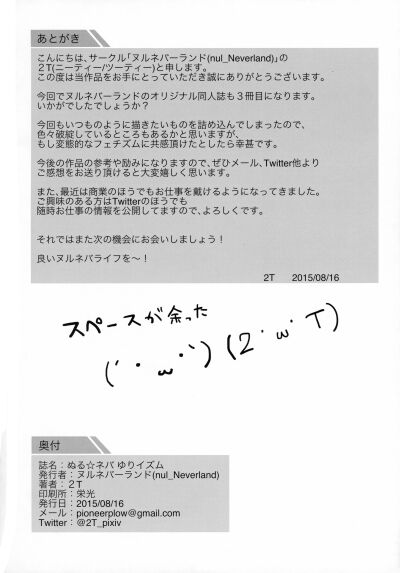 あとがき
こんにちは、サークル「ヌルネバーランド(nul_Neverland)」の
2T(ニーティー/ツーティー)と申します。
この度は当作品をお手にとっていただき誠にありがとうございます。
今回でヌルネバーランドのオリジナル同人誌も3冊目になります。
いかがでしたでしょうか?
今回もいつものように描きたいものを詰め込んでしまったので、
色々破綻しているところもあるかと思いますが、
もし変態的なフェチズムに共感頂けたとしたら幸甚です。
今後の作品の参考や励みになりますので、ぜひメール、Twitter他より
ご感想をお送り頂けると大変嬉しく思います。
また、最近は商業のほうでもお仕事を戴けるようになってきました。
ご興味のある方はTwitterのほうでも
随時お仕事の情報を公開してますので、よろしくです。
それではまた次の機会にお会いしましょう!
良いヌルネバライフを〜!
2T 2015/08/16
スペースが余った
(´・ω・`) (2・ω・T)
奥付
誌名:ぬる☆ネバ ゆりイズム
発行者:ヌルネバーランド(nul_Neverland)
著者:2T
印刷所:栄光
発行日:2015/08/16
メール:pioneerplow@gmail.com
Twitter:@2T_pixiv